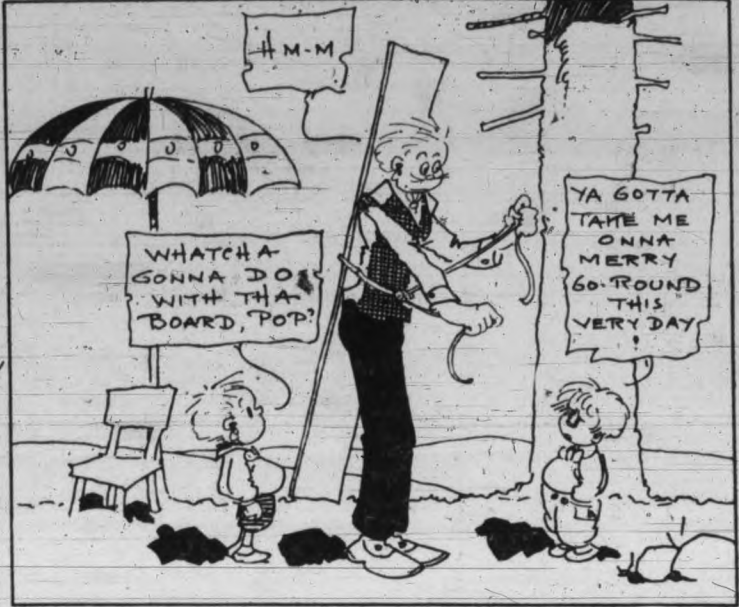 HM-M
WHATCHA
GONNA DO
WITH THA
BOARD, POP?
YA GOTTA
TAKE ME
ONNA
MERRY
GO-ROUND
THIS
VERY DAY
!